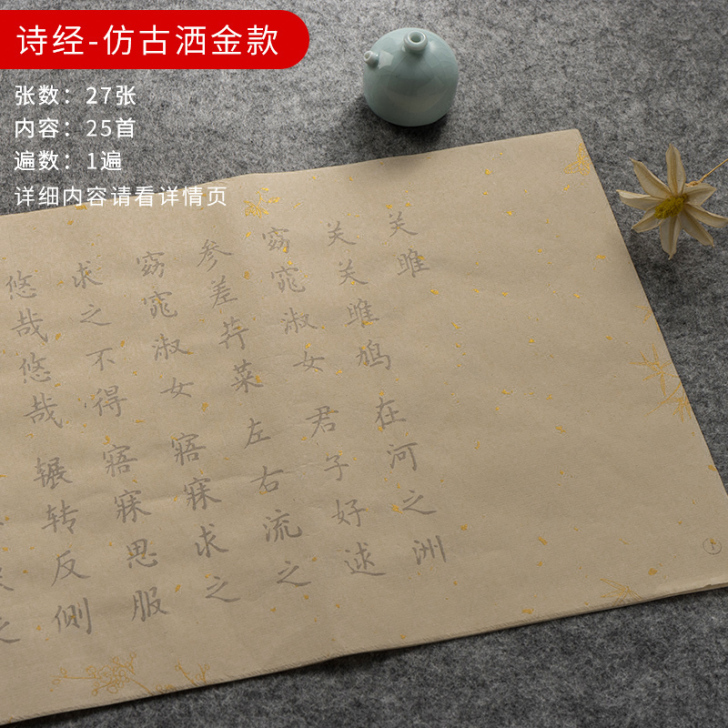 诗经-仿古洒金款
张数：27张
内容：25首
遍数：1遍
详细内容请看详情页
关雎
关关雎鸠 在河之洲
窈窕淑女 君子好逑
参差荇菜 左右流之
窈窕淑女 寤寐求之
求之不得 寤寐思服
悠哉悠哉 辗转反侧
①